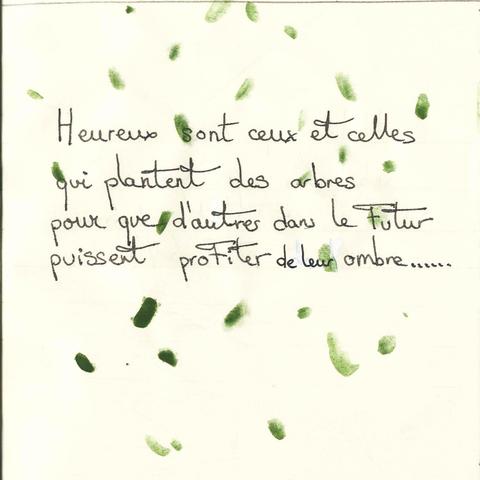 Heureux sont ceux et celles
qui plantent des arbres
pour que d'autres dans le Futur
puissent profiter de leur ombre......